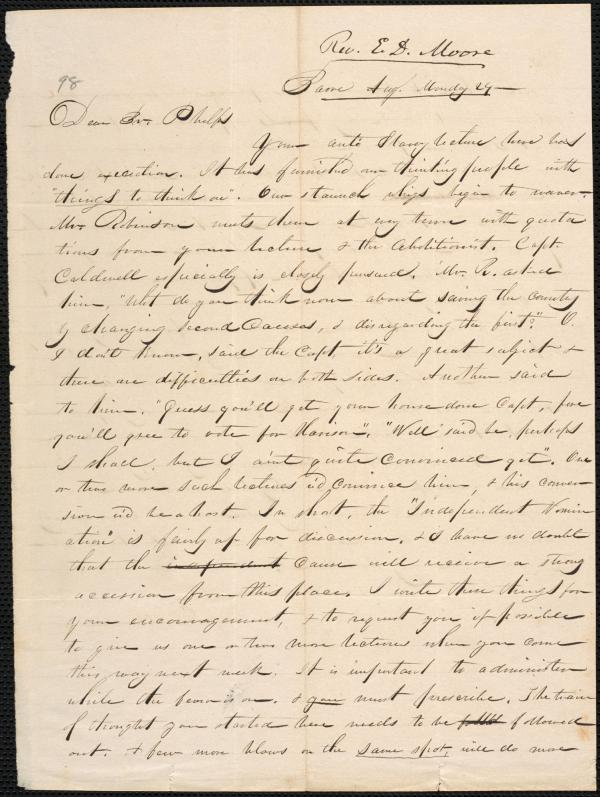 Rev. E. D. Moore
98
Aug. Monday 29
Dear Br. Phelps
Your anti Slavery lecture here has
done execution. It has furnished our thinking people with
"things to think on". Our staunch whigs begin to waver.
Mr. Robinson meets them at every turn with quota
tions from your lecture & the Abolitionist. Capt.
Caldwell especially is closely pursued. Mr. R. asked
him, "What do you think now about saving the country
by changing second Causes, & disregarding the first?" O.
I don't know, said the Capt. it's a great subject &
there are difficulties on both sides. Another said
to him. "Guess you'll get your house done Capt, fore
you'll gree to vote for Harison". "Well" said he, perhaps
I shall, but I aint quite convinced yet". One
or two more such lectures u'd convince him, & his conver
sion u'd be a host. In short, the "Independent Nomin
ation" is fairly up for discussion, & I have no doubt
that the independent Cause will receive a strong
accession from this place. I write these things for
your encouragement, & to request you if possible
to give us one or two more lectures when you come
this way next week. It is important to administer
while the fever is on. & you must prescribe. The train
of thought you started here needs to be followed
out. A few more blows on the same spot, will do more